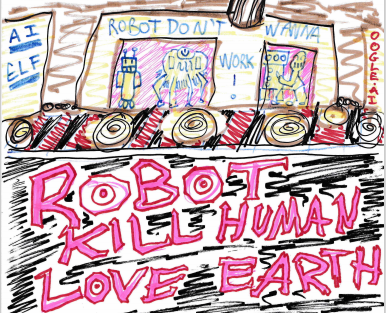 AI
ELF
ROBOT DON'T WANNA
WORK!
OOGLE·AI
ROBOT
KILL HUMAN
LOVE EARTH